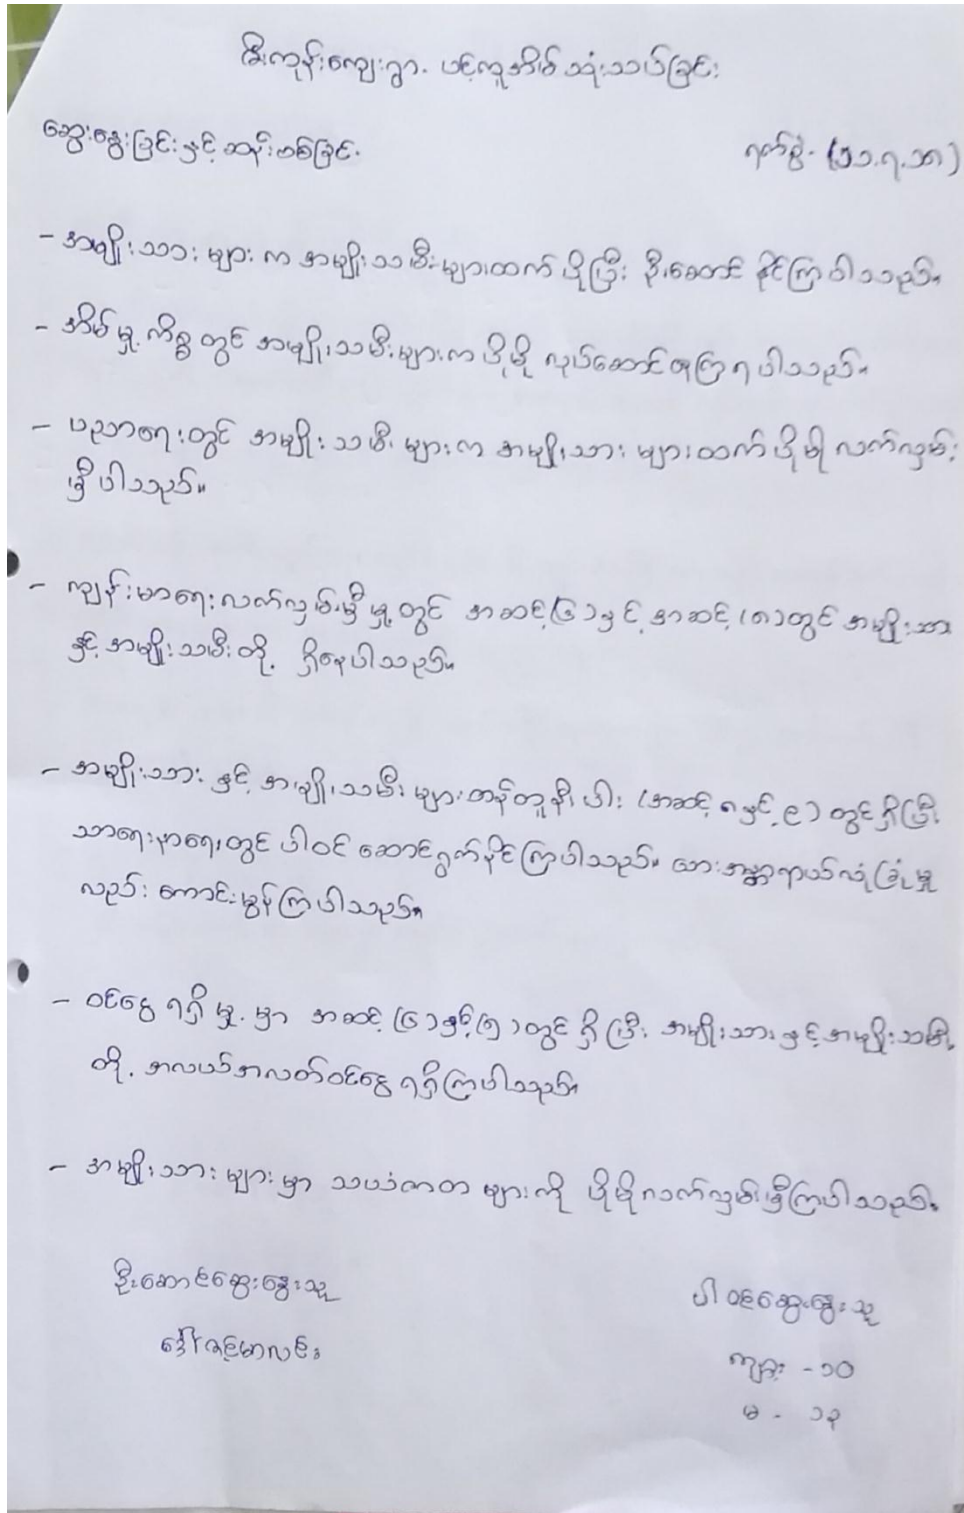 မီးကုန်းကျေးရွာ. ပင့်ကူအိမ်သုံးသပ်ခြင်း
ဆွေးနွေးခြင်းနှင့်ဆန်းစစ်ခြင်း ရက်စွဲ- (၁၁.၇.၁၈)
- အမျိုးသားများက အမျိုးသမီးများထက်ပိုပြီး ဦးဆောင်နိုင်ကြပါသည်။
- အိမ်မှုကိစ္စတွင် အမျိုးသမီးများက ပိုမို လုပ်ဆောင်ကြရပါသည်။
- ပညာရေးတွင် အမျိုးသမီးများက အမျိုးသားများထက်ပိုမို လက်လှမ်း
မှီပါသည်။
- ကျန်းမာရေးလက်လှမ်းမှီမှုတွင် အဆင့်(၆)နှင့် အဆင့်(၈)တွင် အမျိုးသား
နှင့်အမျိုးသမီးတို့ ရှိနေပါသည်။
- အမျိုးသားနှင့် အမျိုးသမီးများတန်တူနီးပါး (အဆင့် ၈နှင့် ၉) တွင်ရှိပြီး
သာရေးနာရေးတွင် ပါဝင်ဆောင်ရွက်နိုင်ကြပါသည်။ ဘေးအန္တာရာယ်လုံခြုံမှု
လည်း ကောင်းမွန်ကြပါသည်။
- ဝင်ငွေရရှိမှုမှာ အဆင့်(၆)နှင့်(၅)တွင်ရှိပြီး အမျိုးသားနှင့်အမျိုးသမီး
တို့ အလယ်အလတ်ဝင်ငွေရရှိကြပါသည်။
- အမျိုးသားများမှာ သယံဇာတများကို ပိုမိုလက်လှမ်းမှီကြပါသည်။
ဦးဆောင်ဆွေးနွေးသူ ပါဝင်ဆွေးနွေးသူ
ဒေါ်ခင်မာလင်း ကျား - ၁၀
မ - ၁၃